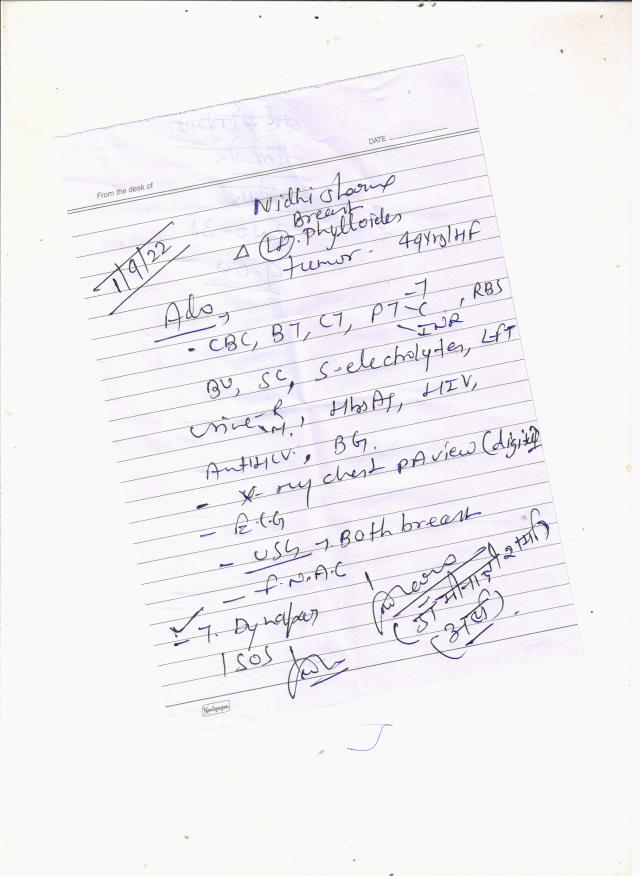 From the desk of
DATE
Nidhi Sharma
1/9/22
Breast
Δ Lt. Phylloides
tumor. 49yrs/HF
Adv,
- CBC, BT, CT, PT - T
C
INR, RBS
BU, SC, S-electrolytes, LFT
Urine R
M, HbsAg, HIV,
AntiHCV, BG.
- X-ray chest PA view (digital)
- E.C.G
- USG → Both breast
- F.N.A.C
- T. Dynapar
1 SOS
Neelgagan